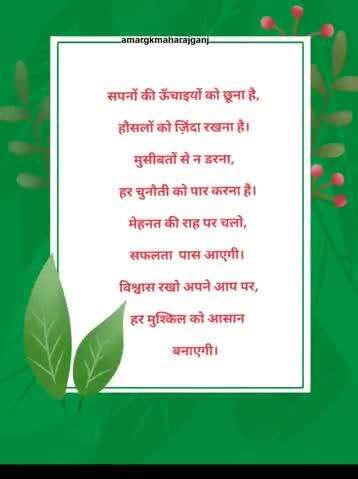 amargkmaharajganj
सपनों की ऊँचाइयों को छूना है,
हौसलों को ज़िंदा रखना है।
मुसीबतों से न डरना,
हर चुनौती को पार करना है।
मेहनत की राह पर चलो,
सफलता पास आएगी।
विश्वास रखो अपने आप पर,
हर मुश्किल को आसान
बनाएगी।